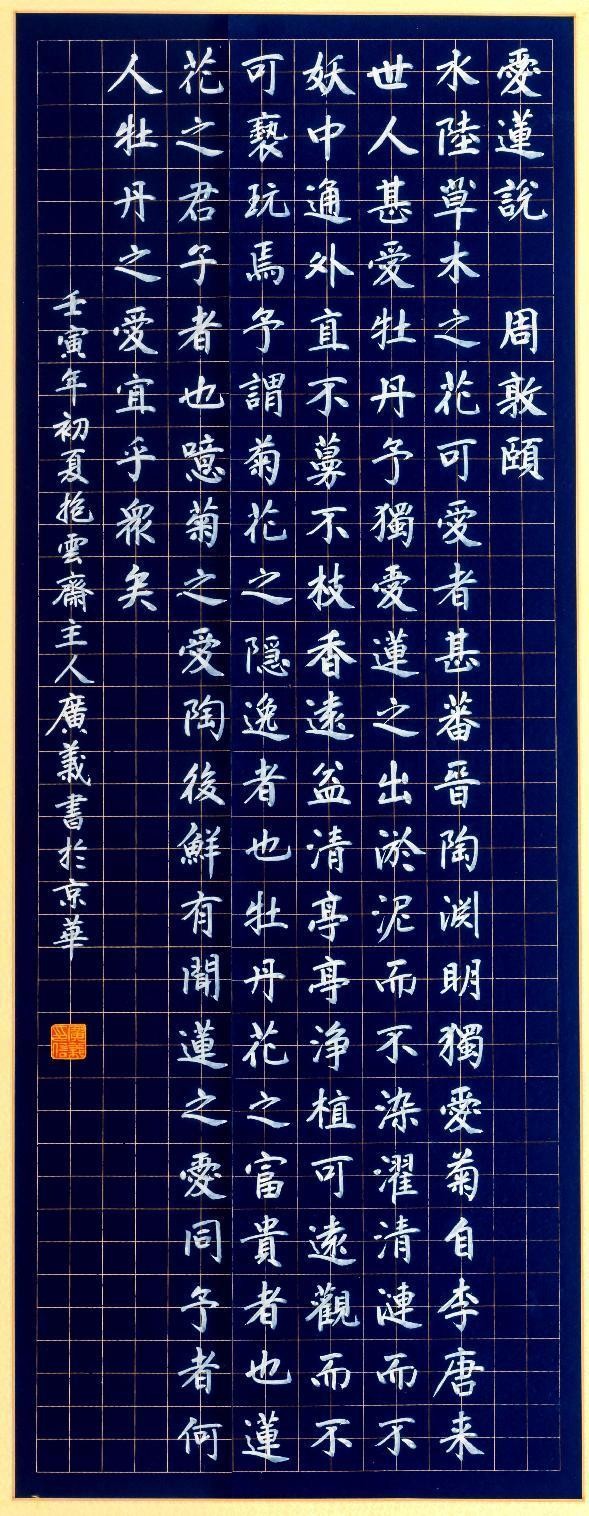 愛蓮說 周敦頤
水陸草木之花可愛者甚蕃晉陶渊明獨愛菊自李唐来
世人甚愛牡丹予獨愛蓮之出淤泥而不染濯清漣而不
妖中通外直不蔓不枝香遠益清亭亭净植可遠觀而不
可褻玩焉予謂菊花之隱逸者也牡丹花之富貴者也蓮
花之君子者也噫菊之愛陶後鮮有聞蓮之愛同予者何
人牡丹之愛宜乎衆矣
壬寅年初夏抱雲齋主人廣義書於京華
廣義印信